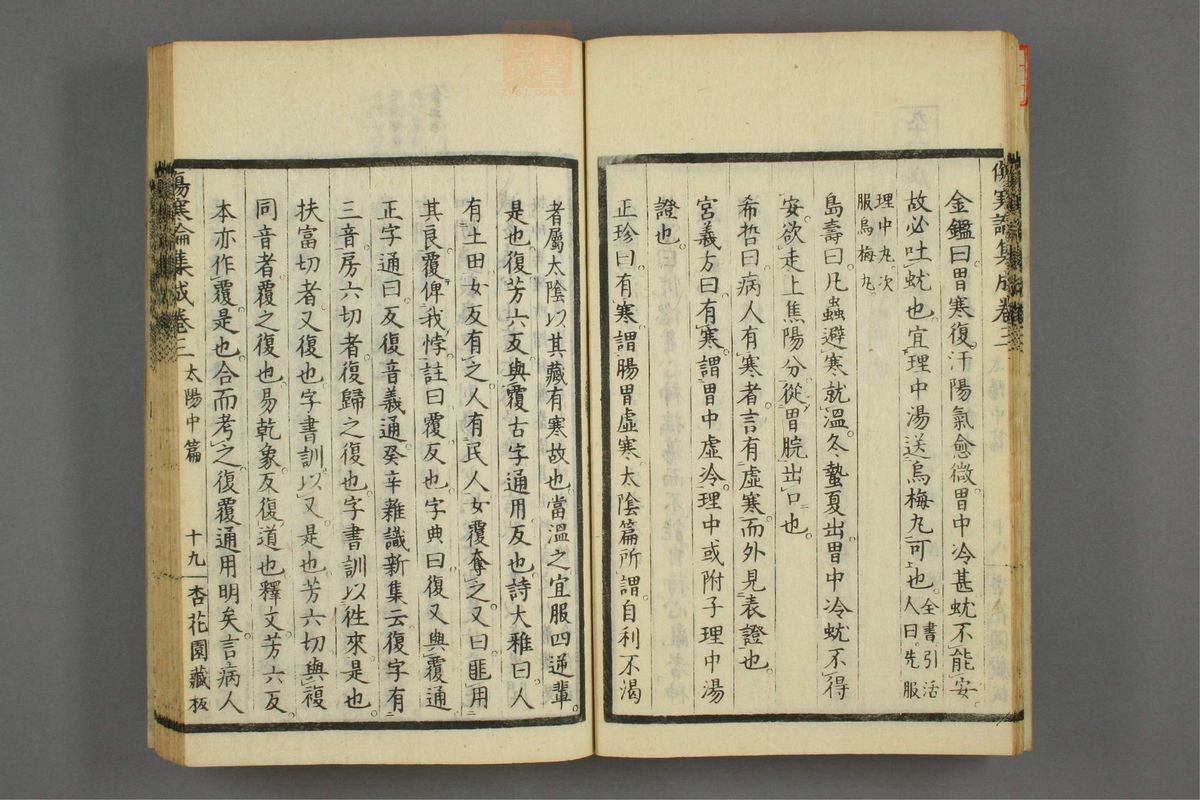 傷寒論集成卷三
金鑑曰胃寒復汗陽氣愈微胃中冷甚蚘不能安
故必吐蚘也宜理中湯送烏梅丸可也全書引活人曰先服
理中丸次服烏梅丸
島壽曰凡蟲避寒就溫冬蟄夏出胃中冷蚘不得
安欲走上焦陽分從胃脘出口也
希哲曰病人有寒者言有虛寒而外見表證也
宮義方曰有寒謂胃中虛冷理中或附子理中湯
證也
正珍曰有寒謂腸胃虛寒太陰篇所謂自利不渴
者屬太陰以其藏有寒故也當溫之宜服四逆輩
是也復芳六反與覆古字通用反也詩大雅曰人
有土田女反有之人有民人女覆奪之又曰匪用
其良覆俾我悖註曰覆反也字典曰復又與覆通
正字通曰反復音義通癸辛雜識新集云復字有
三音房六切者復歸之復也字書訓以徃來是也
扶富切者又復也字書訓以又是也芳六切與複
同音者覆之復也易乾象反復道也釋文芳六反
本亦作覆是也合而考之復覆通用明矣言病人
傷寒論集成卷三 太陽中篇 十九 杏花園藏板